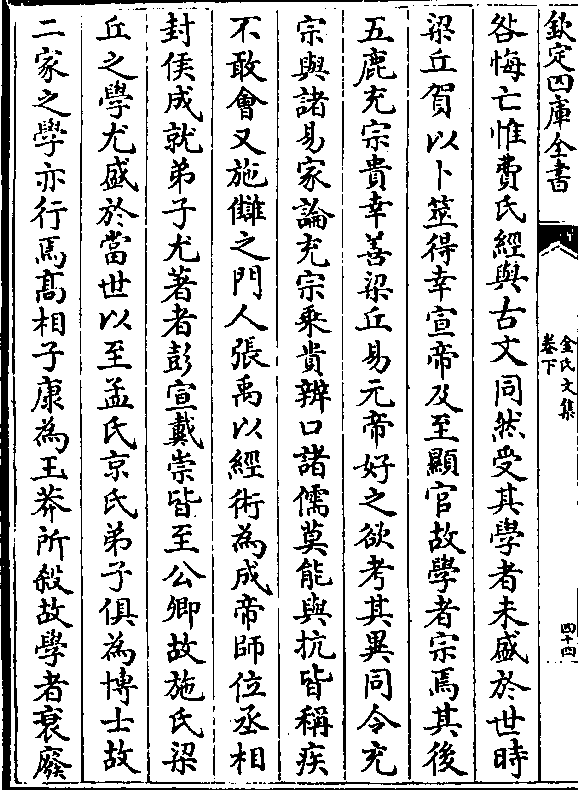 欽定四庫全書
金氏文集
卷下
四十四
咎悔亡惟費氏經與古文同然受其學者未盛於世時
梁丘賀以卜筮得幸宣帝及至顯官故學者宗焉其後
五鹿充宗貴幸善梁丘易元帝好之欲考其異同令充
宗與諸易家論充宗乘貴辨口諸儒莫能與抗皆稱疾
不敢會又施讎之門人張禹以經術為成帝師位丞相
封侯成就弟子尤著者彭宣戴崇皆至公卿故施氏梁
丘之學尤盛於當世以至孟氏京氏弟子俱為博士故
二家之學亦行焉髙相子康為王莽所殺故學者衰廢